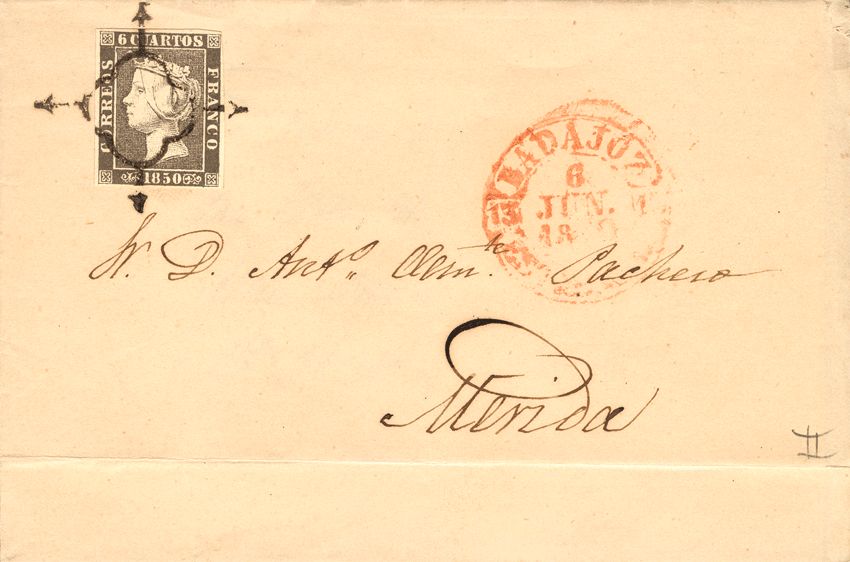 6 CUARTOS
CORREOS
FRANCO
1850
BADAJOZ
6
JUN.
D. Antº Clemte Pacheco
Merida
II